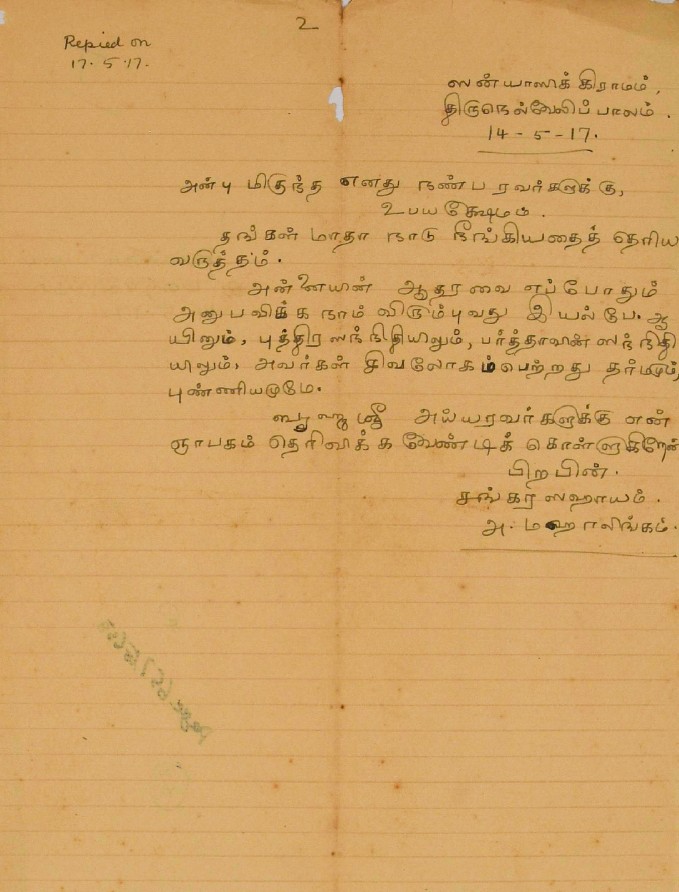 2
Repied on
17. 5. 17.
ஸன்யாஸிக் கிராமம்,
திருநெல்வேலிப் பாலம்.
14 - 5 - 17.
அன்பு மிகுந்த எனது நண்ப ரவர்களுக்கு,
உபய க்ஷேமம்.
தங்கள் மாதா நாடு நீங்கியதைத் தெரிய
வருத்தம்.
அன்னையின் ஆதரவை எப்போதும்
அனுபவிக்க நாம் விரும்புவது இயல்பே. ஆ
யினும், புத்திர ஸந்நிதியிலும், பர்த்தாவின் ஸந்நிதி
யிலும், அவர்கள் சிவலோகம் பெற்றது தர்மமும்,
புண்ணியமுமே.
ஸ்ரீ அய்யரவர்களுக்கு என்
ஞாபகம் தெரிவிக்க வேண்டிக் கொள்ளுகிறேன்
பிற பின்.
சங்கர ஸஹாயம்.
அ. மஹாலிங்கம்.